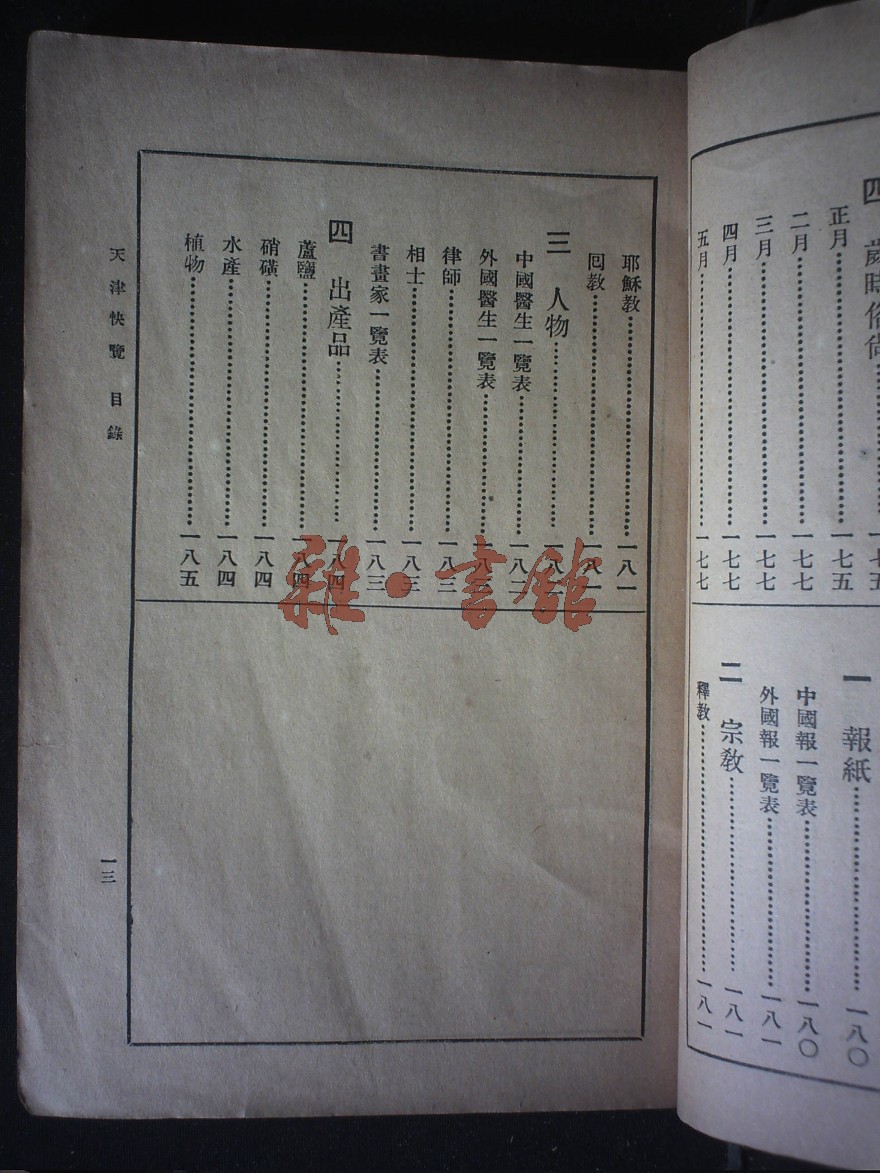 四 歲時俗尚……一七五
正月……一七五
二月……一七七
三月……一七七
四月……一七七
五月……一七七
一 報紙……一八〇
中國報一覽表……一八〇
外國報一覽表……一八一
二 宗敎……一八一
釋敎……一八一
耶穌敎……一八一
囘敎……一八一
三 人物……一八
中國醫生一覽表……一八二
外國醫生一覽表……一八
律師……一八三
相士……一八三
書畫家一覽表……一八三
四 出產品……一八四
蘆鹽……一八四
硝磺……一八四
水產……一八四
植物……一八五
天津快覽 目錄
一三
雜·書舘